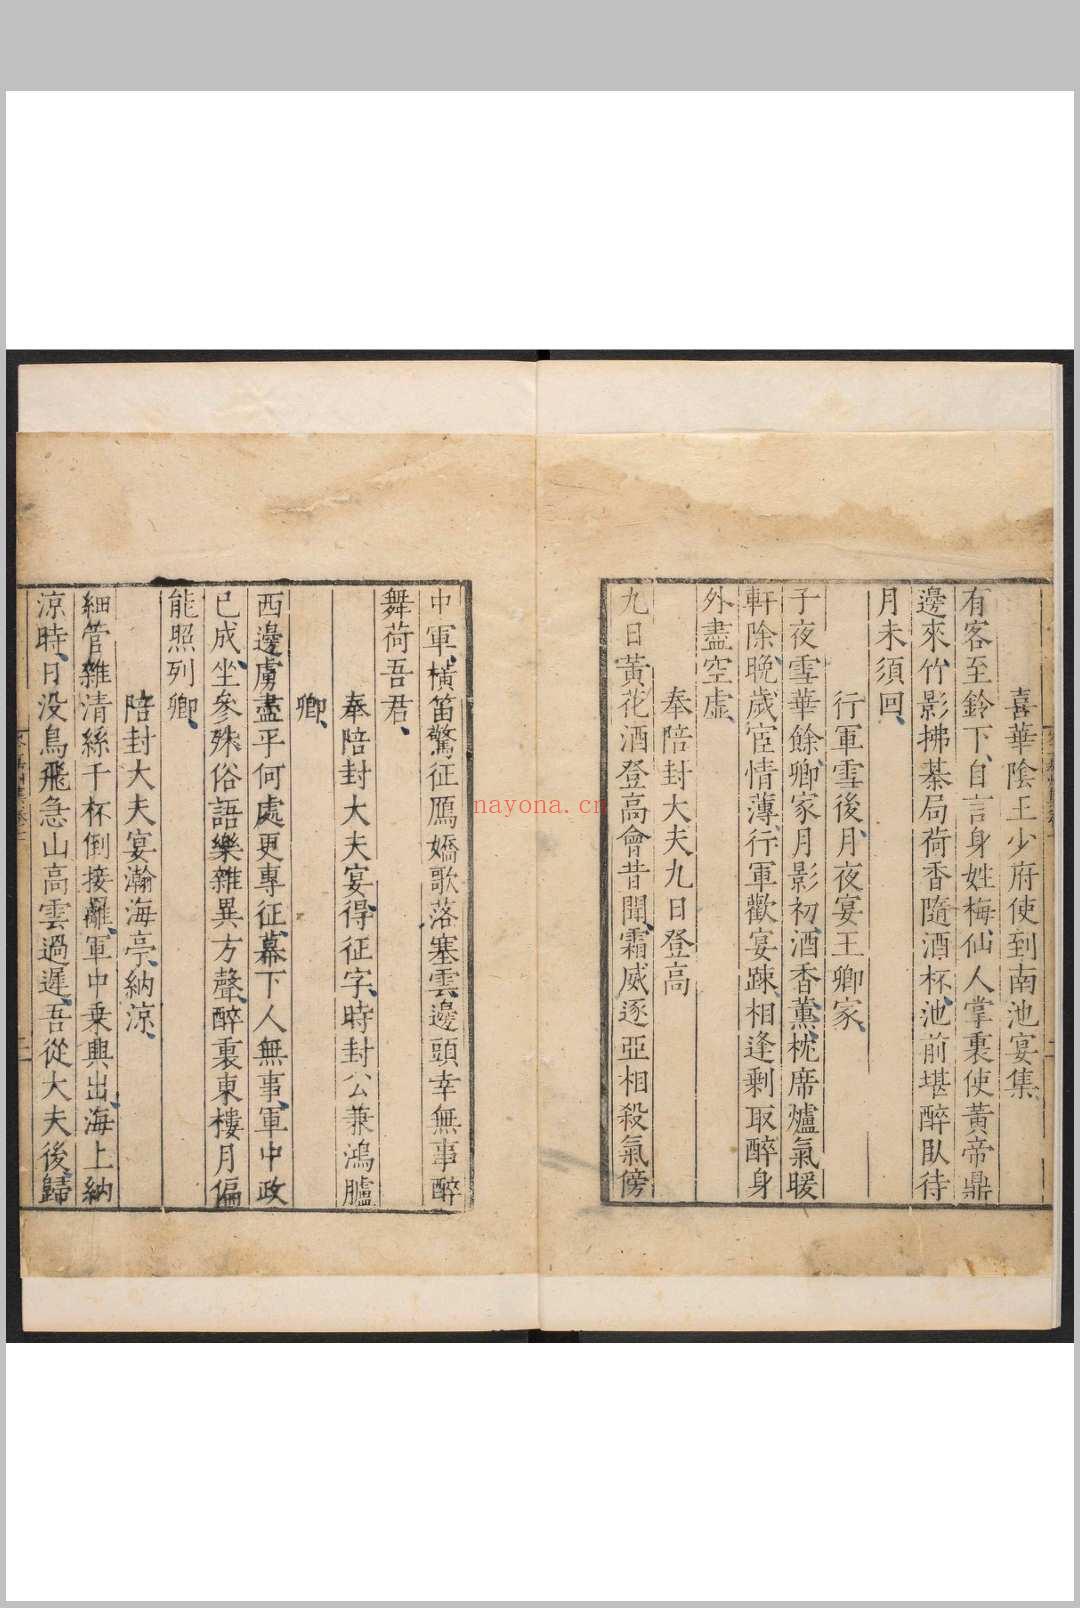 喜華陰王少府使到南池宴集
有客至鈴下、自言身姓梅、仙人掌裏使黃帝鼎
邊來、竹影拂棊局荷香隨酒杯、池前堪醉臥待
月未須回、
行軍雪後月夜宴王卿家、
子夜雪華餘、卿家月影初、酒香薰、枕席爐氣暖
軒除、晚歲宦情薄、行軍歡宴踈、相逢剩取醉身
外盡空虛、
奉陪封大夫九日登高
九日黃花酒登高會昔聞、霜威逐亞相殺氣傍
中軍、橫笛驚征鴈嬌歌落塞雲、邊頭幸無事醉
舞荷吾君、
奉陪封大夫宴得征字、時封公兼鴻臚
卿、
西邊虜盡平何處更專征、幕下人無事、軍中政
已成、坐參殊俗語樂雜異方聲、醉裏東樓月偏
能照列卿、
陪封大夫宴瀚海亭、納涼、
細管雜清絲千杯倒接䍦、軍中乗興出、海上納
涼時、日没鳥飛急山高雲過遲、吾從大夫後、歸
nayona.cn